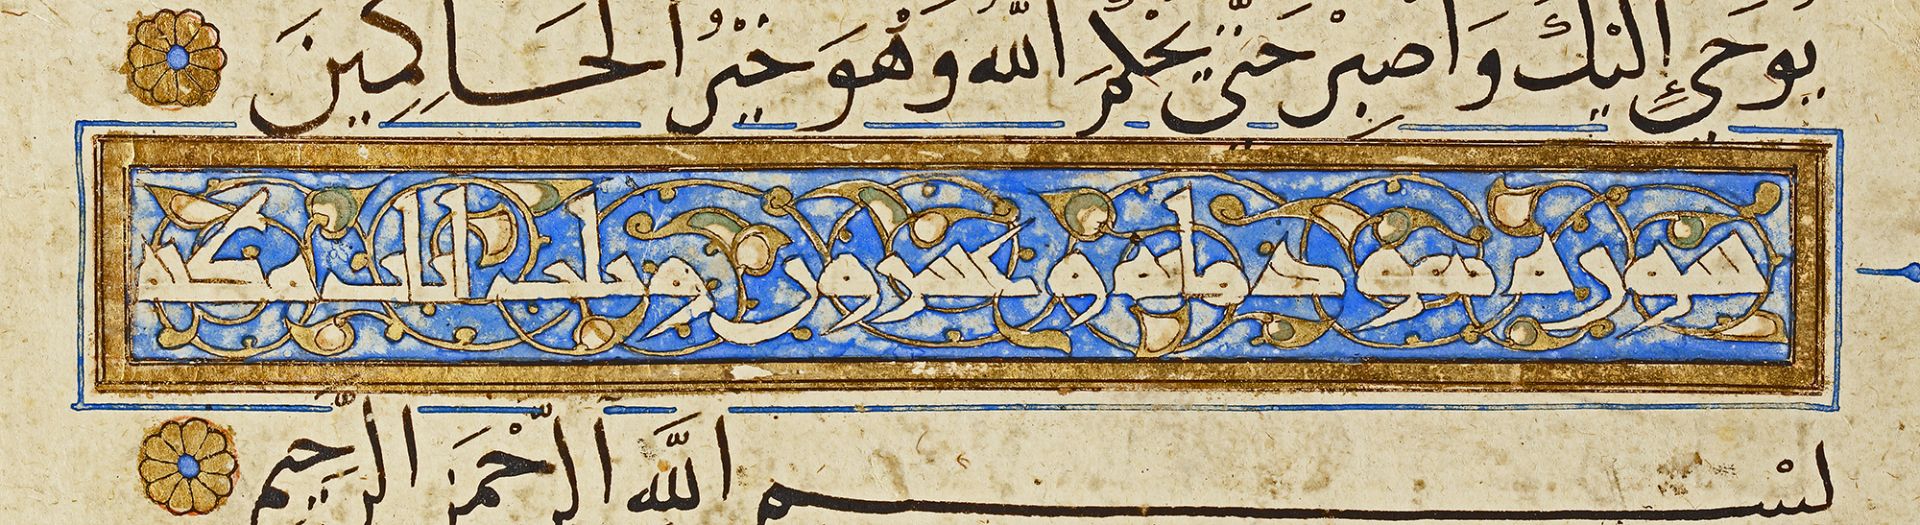 يُوحَىٰ إِلَيْكَ وَاصْبِرْ حَتَّىٰ يَحْكُمَ اللَّهُ وَهُوَ خَيْرُ الْحَاكِمِينَ
سورة هود مايه وعشرون وثلث ايات مكيه
بِسْمِ اللَّهِ الرَّحْمَنِ الرَّحِيمِ